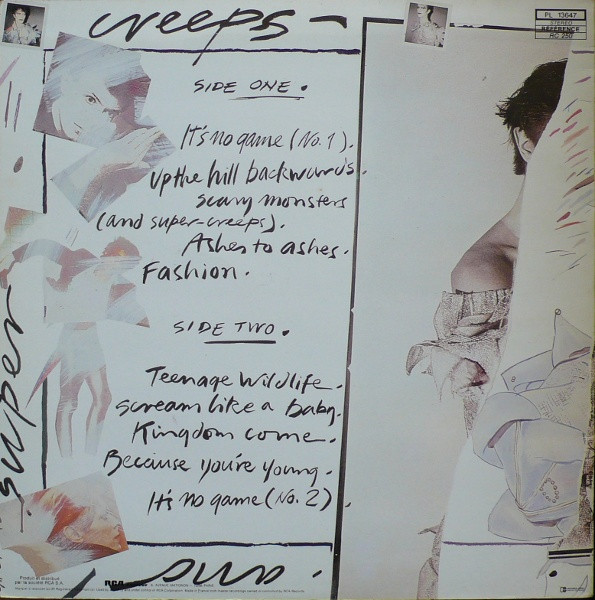 creeps -
PL 13647
STEREO
RÉFÉRENCE
RC 250
SIDE ONE.
It's no game (No. 1).
Up the hill backwards.
Scary monsters
(and super-creeps).
Ashes to ashes.
Fashion.
SIDE TWO.
Teenage Wildlife.
Scream like a baby.
Kingdom come.
Because you're young.
It's no game (No. 2)
super
RCA